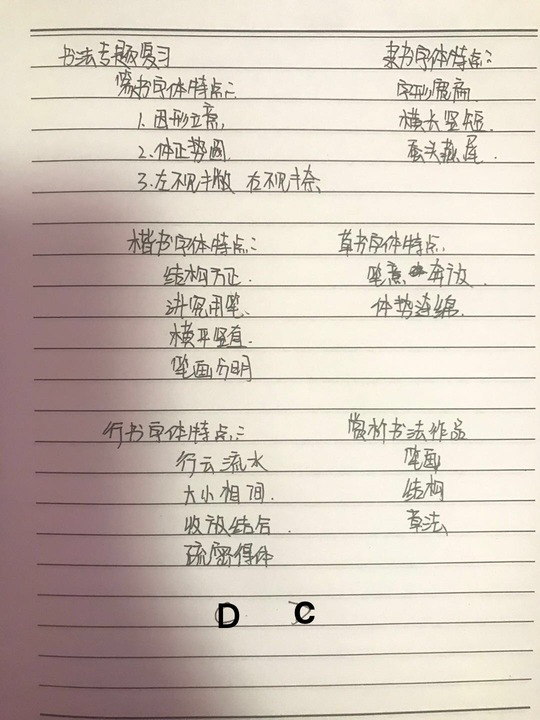 书法专题复习
篆书字体特点:
1.因形立意,
2.体正势圆.
3.左不见撇 右不见捺
隶书字体特点:
字形宽扁
横长竖短.
蚕头燕尾.
楷书字体特点:
结构方正.
讲究用笔.
横平竖直.
笔画分明
草书字体特点.
笔意 奔放.
体势连绵.
行书字体特点:
行云流水
大小相间.
收放结合.
疏密得体
赏析书法作品
笔画
结构
章法
D C